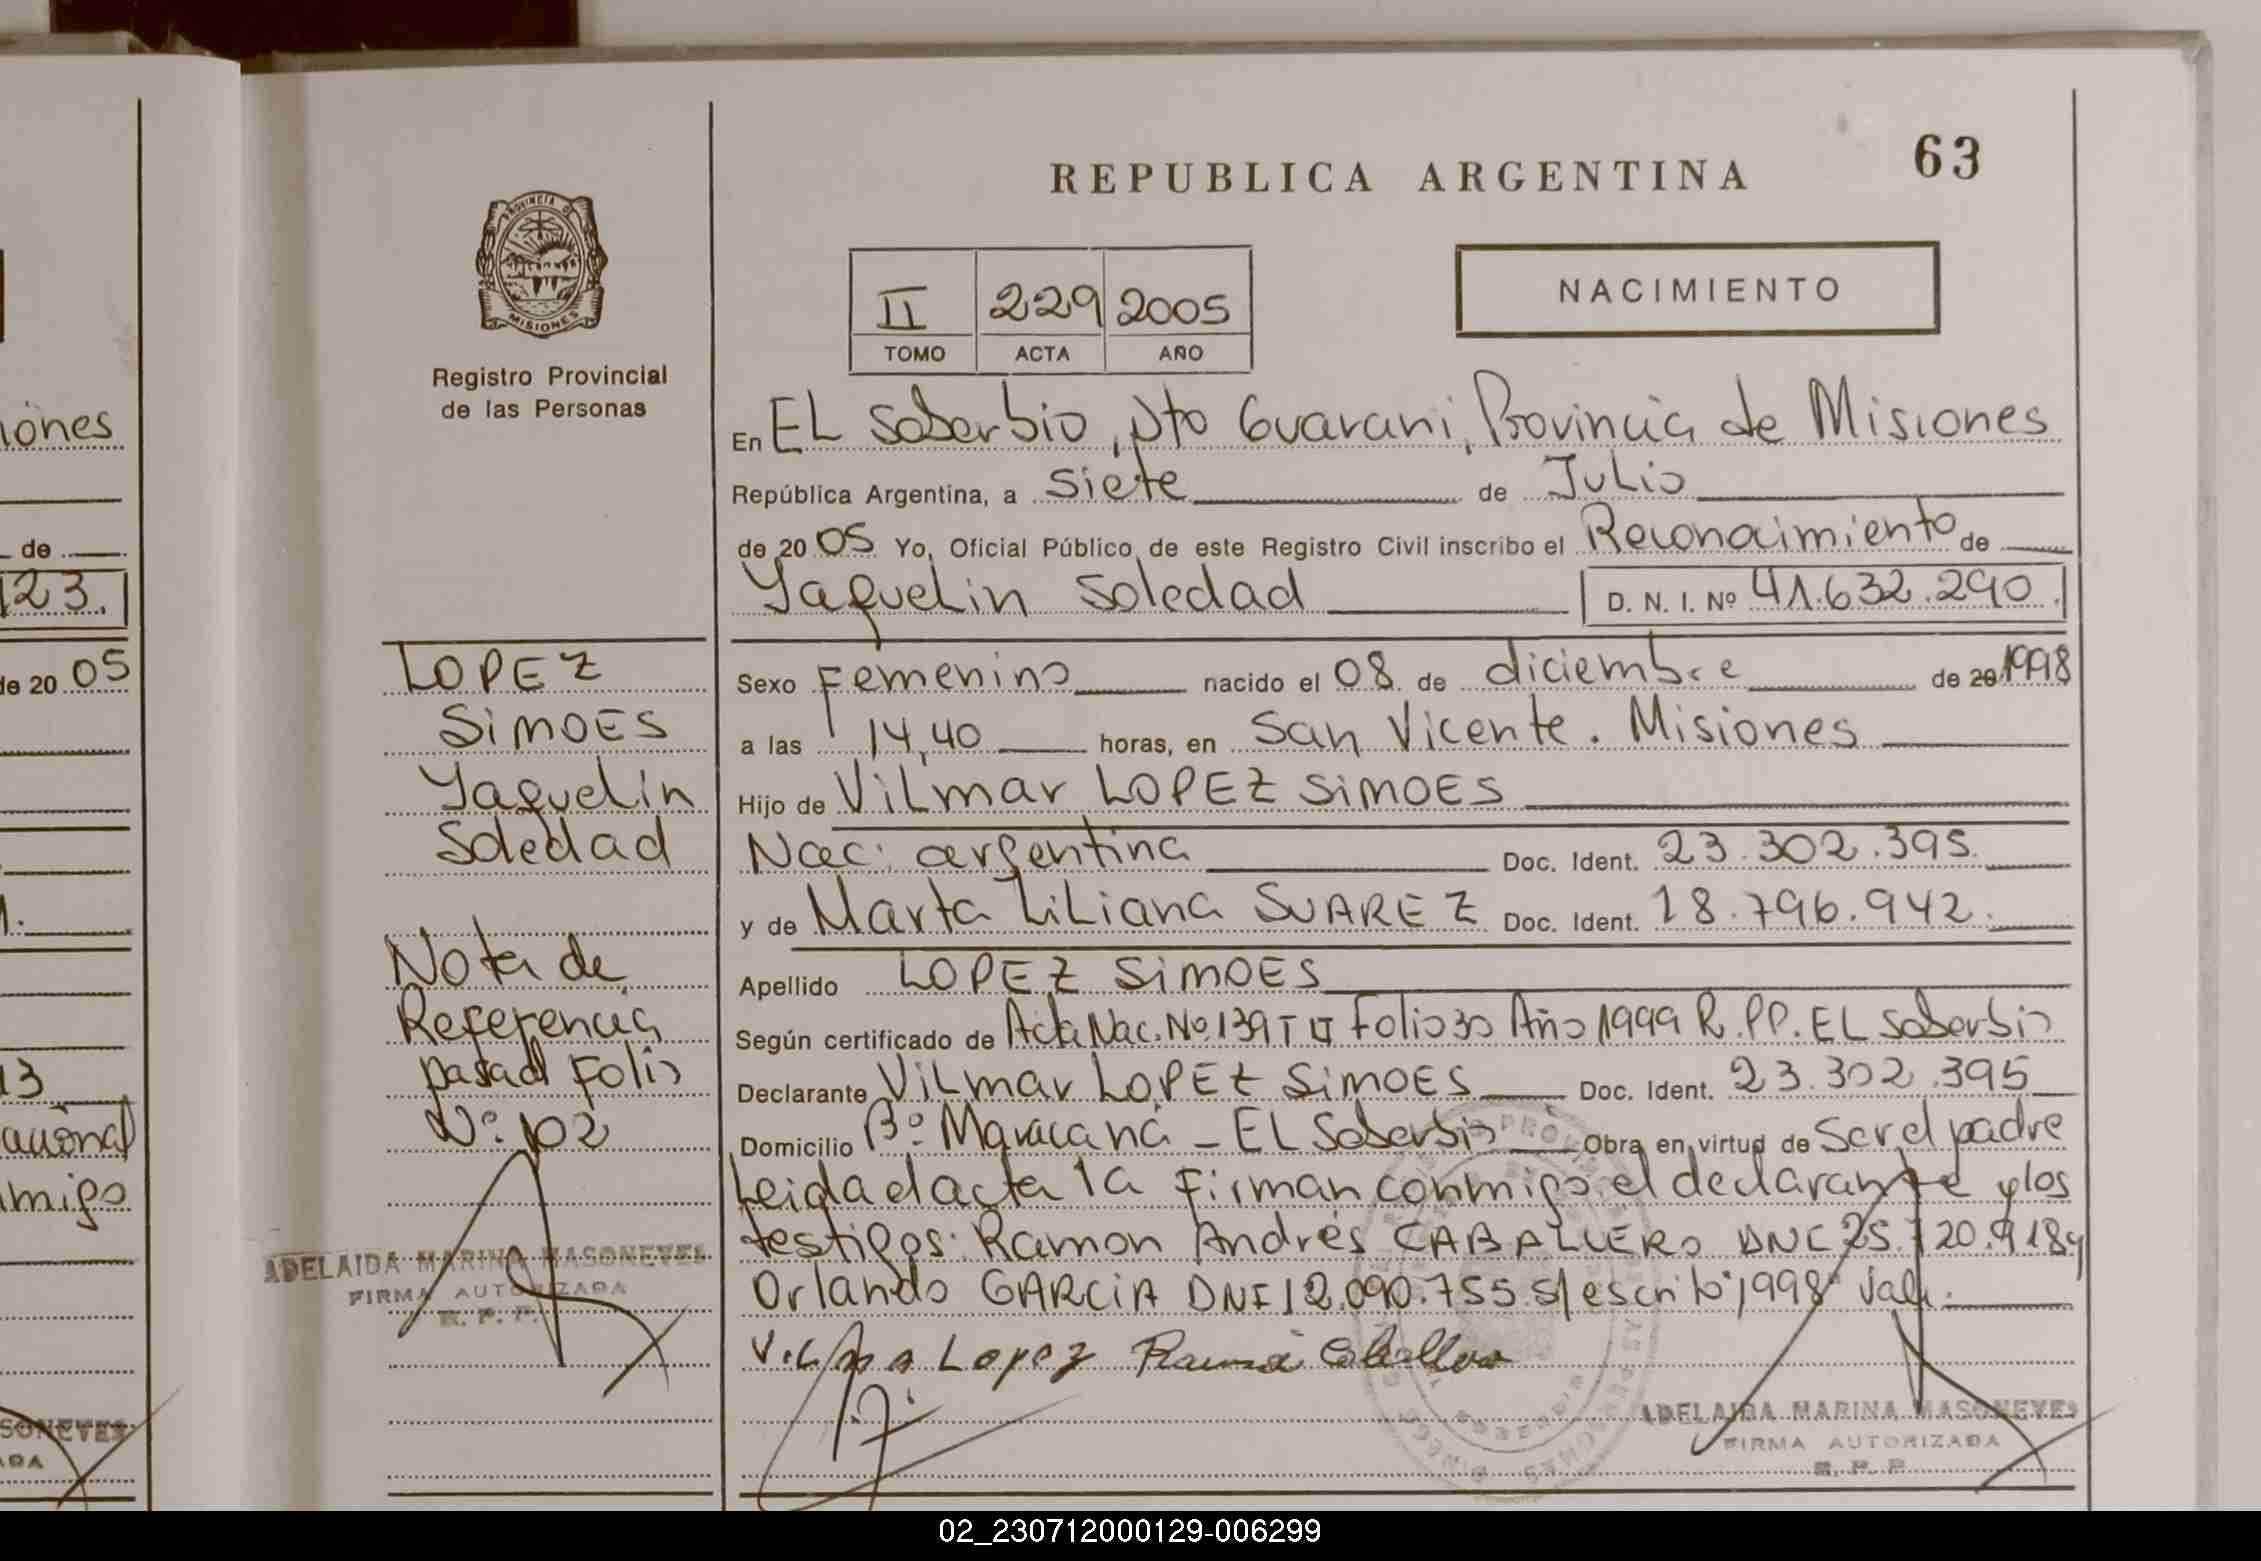 63
REPUBLICA ARGENTINA
PROVINCIA DE
MISIONES
Registro Provincial
de las Personas
II 229 2005
TOMO ACTA AÑO
NACIMIENTO
En EL Soberbio, Dto Guarani, Provincia de Misiones
República Argentina, a Siete de Julio
de 2005 Yo, Oficial Público de este Registro Civil inscribo el Reconocimiento de
Yaquelin Soledad D. N. I. Nº 41.632.290.
Sexo Femenino nacido el 08 de diciembre de 20 1998
a las 14,40 horas, en San Vicente. Misiones
Hijo de Vilmar LOPEZ SIMOES
Nac: argentina Doc. Ident. 23.302.395.
y de Marta Liliana SUAREZ Doc. Ident. 18.796.942.
Apellido LOPEZ SIMOES
Según certificado de Acta Nac. Nº 139 T II Folio 30 Año 1999 R.P.P. EL Soberbio
Declarante Vilmar LOPEZ SIMOES Doc. Ident. 23.302.395
Domicilio Bº Maracaná - EL Soberbio Obra en virtud de Ser el padre
Leida el acta la Firman conmigo el declarante y los
testigos: Ramon Andrés CABALLERO DNI 25.720.918 y
Orlando GARCIA DNI 12.090.755. s/escrito "1998" Vale.
Lopez
ADELAIDA MARINA MASONEVES
FIRMA AUTORIZADA
R. P. P.
LOPEZ
SIMOES
Yaquelin
Soledad
Nota de
Referencia
pasad Folio
Nº 102
ADELAIDA MARINA MASONEVES
FIRMA AUTORIZADA
R. P. P.
iones
de
123.
de 20 05
13
migo
SONEVES
02_230712000129-006299